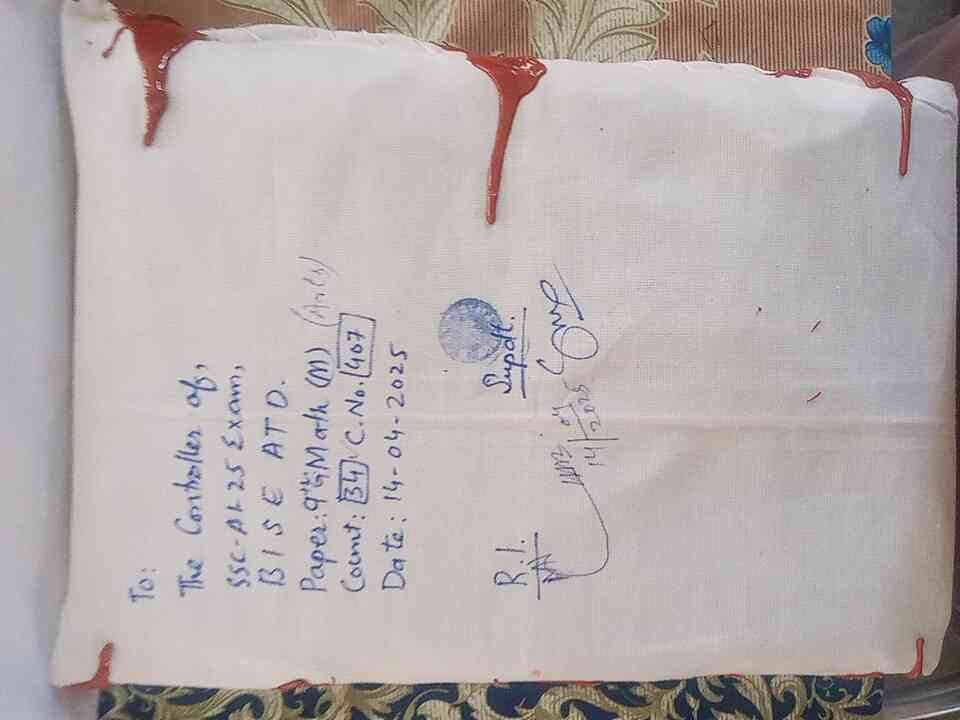 To:
The Controller of,
SSC-A1-25 Exam,
BISE ATD.
Paper: 9th G Math (M) (Arts)
Count: 34 C.No. 407
Date: 14-04-2025
R.I. Supdt.
14/04
2025